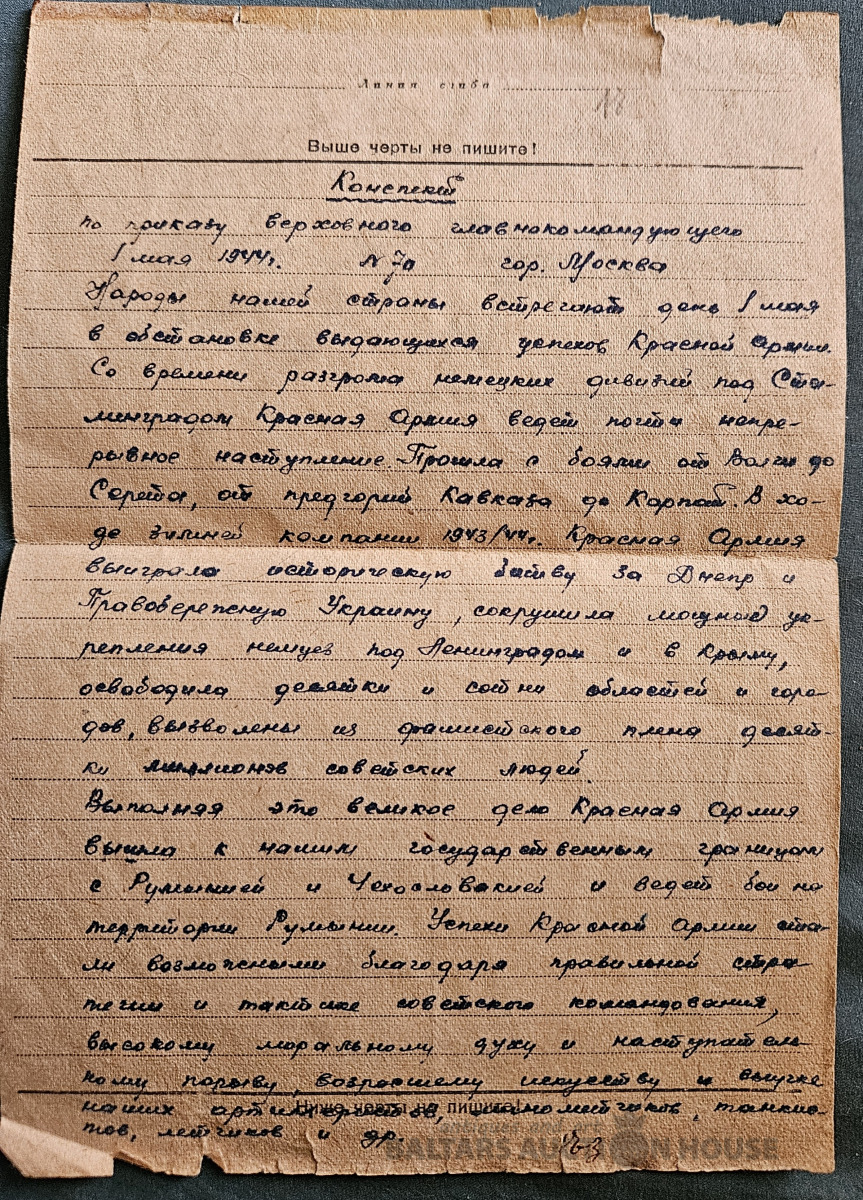 Линия сгиба
18
Выше черты не пишите!
Конспект
по приказу верховного главнокомандующего
1 мая 1944г. № 70 гор. Москва
Народы нашей страны встречают день 1 мая
в обстановке выдающихся успехов Красной Армии.
Со времени разгрома немецких дивизий под Ста-
линградом Красная Армия ведет почти непре-
рывное наступление. Прошла с боями от Волги до
Серета, от предгорий Кавказа до Карпат. В хо-
де зимней компании 1943/44г. Красная Армия
выиграла историческую битву за Днепр и
Правобережную Украину, сокрушила мощные ук-
репления немцев под Ленинградом и в Крыму,
освободила десятки и сотни областей и горо-
дов, вызволены из фашистского плена десят-
ки миллионов советских людей.
Выполняя это великое дело Красная Армия
вышла к нашим государственным границам
с Румынией и Чехословакией и ведет бои на
территории Румынии. Успехи Красной Армии ста-
ли возможными благодаря правильной стра
тегии и тактике советского командования,
высокому моральному духу и наступатель-
ному порыву, возросшему искуству и выучке
Ниже черты не пишите!
наших артиллеристов, минометчиков, танкис-
тов, летчиков и др.
BALTARS AUCTION HOUSE